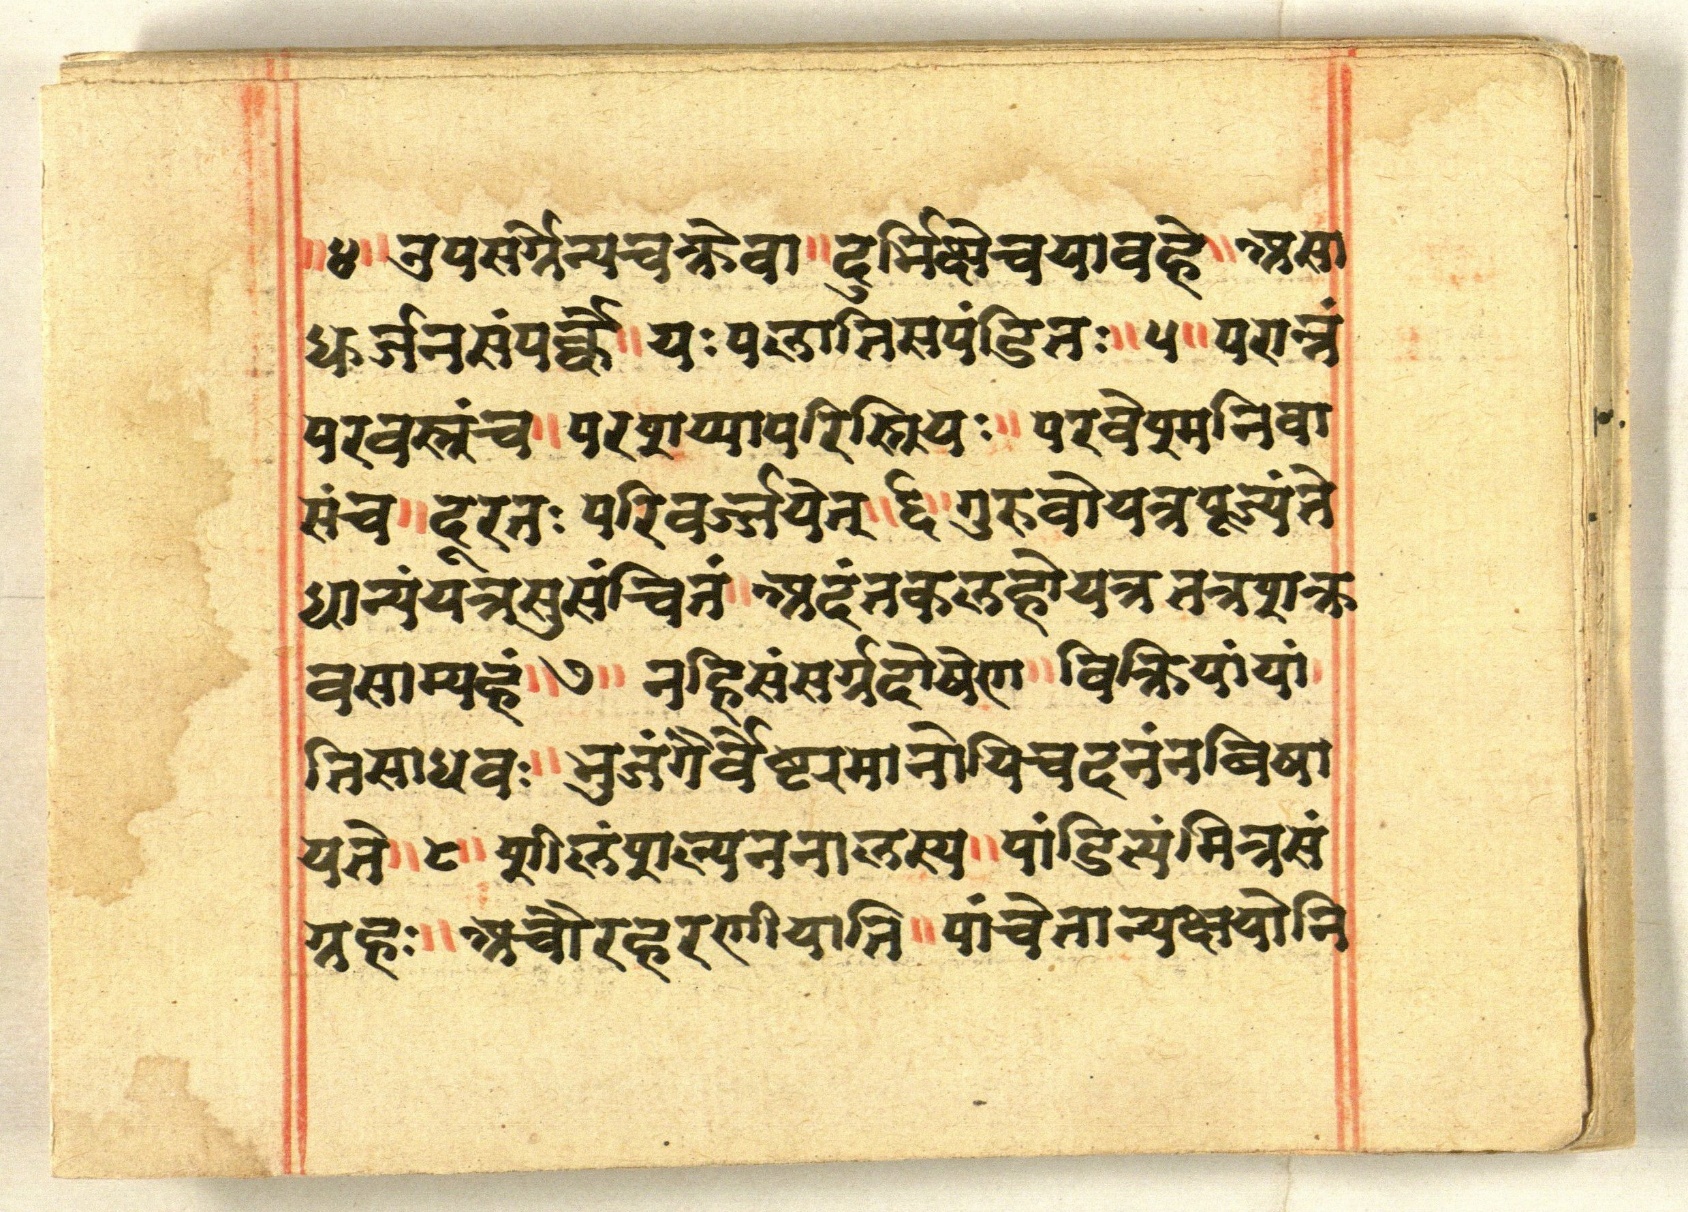 ॥४॥ उपसर्गेन्यचक्रेवा॥ दुर्भिक्षेचयावहे॥ असा
धुर्जनसंपर्क्कै॥ यः पलातिसपंडितः॥५॥ परान्नं
परवस्त्रंच॥ परशय्यापरिस्त्रियः॥ परवेश्मनिवा
संच॥ दूरतः परिवर्ज्जयेत्॥६॥ गुरुवोयत्रपूज्यंते
धान्यंयत्रसुसंचितं॥ अदंतकलहोयत्र तत्रशक्र
वसाम्यहं॥७॥ नहिसंसर्गदोषेण॥ विक्रियांयां
तिसाधवः॥ भुजंगैर्वेष्टरमानोपिचदनंनबिषा
यते॥८॥ शीलंशल्यनमालस्य॥ पांडित्यंमित्रसं
ग्रहः॥ अचौरहरणीयाति॥ पांचेतान्यक्षयोनि